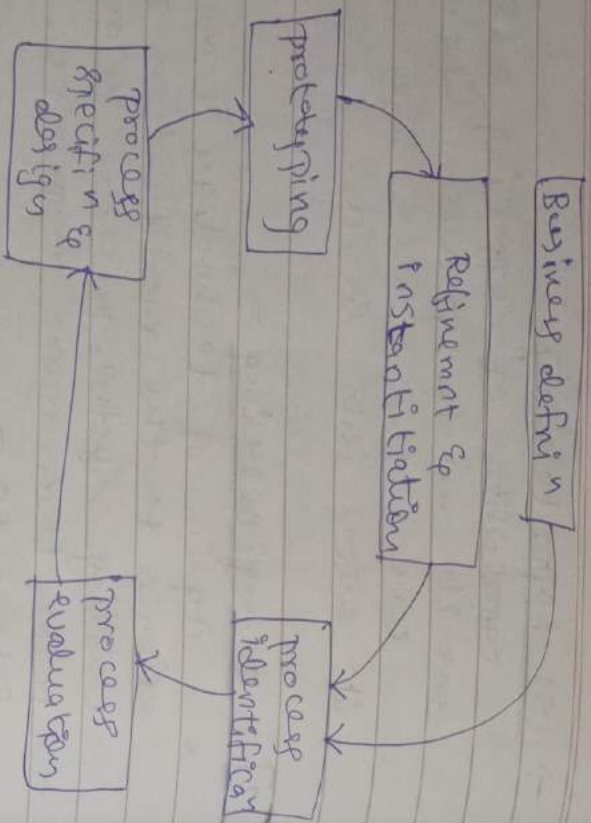 Business definin
Refinemnt &
instantitiation
process
identifican
process
evaluation
process
specifin &
design
prototyping